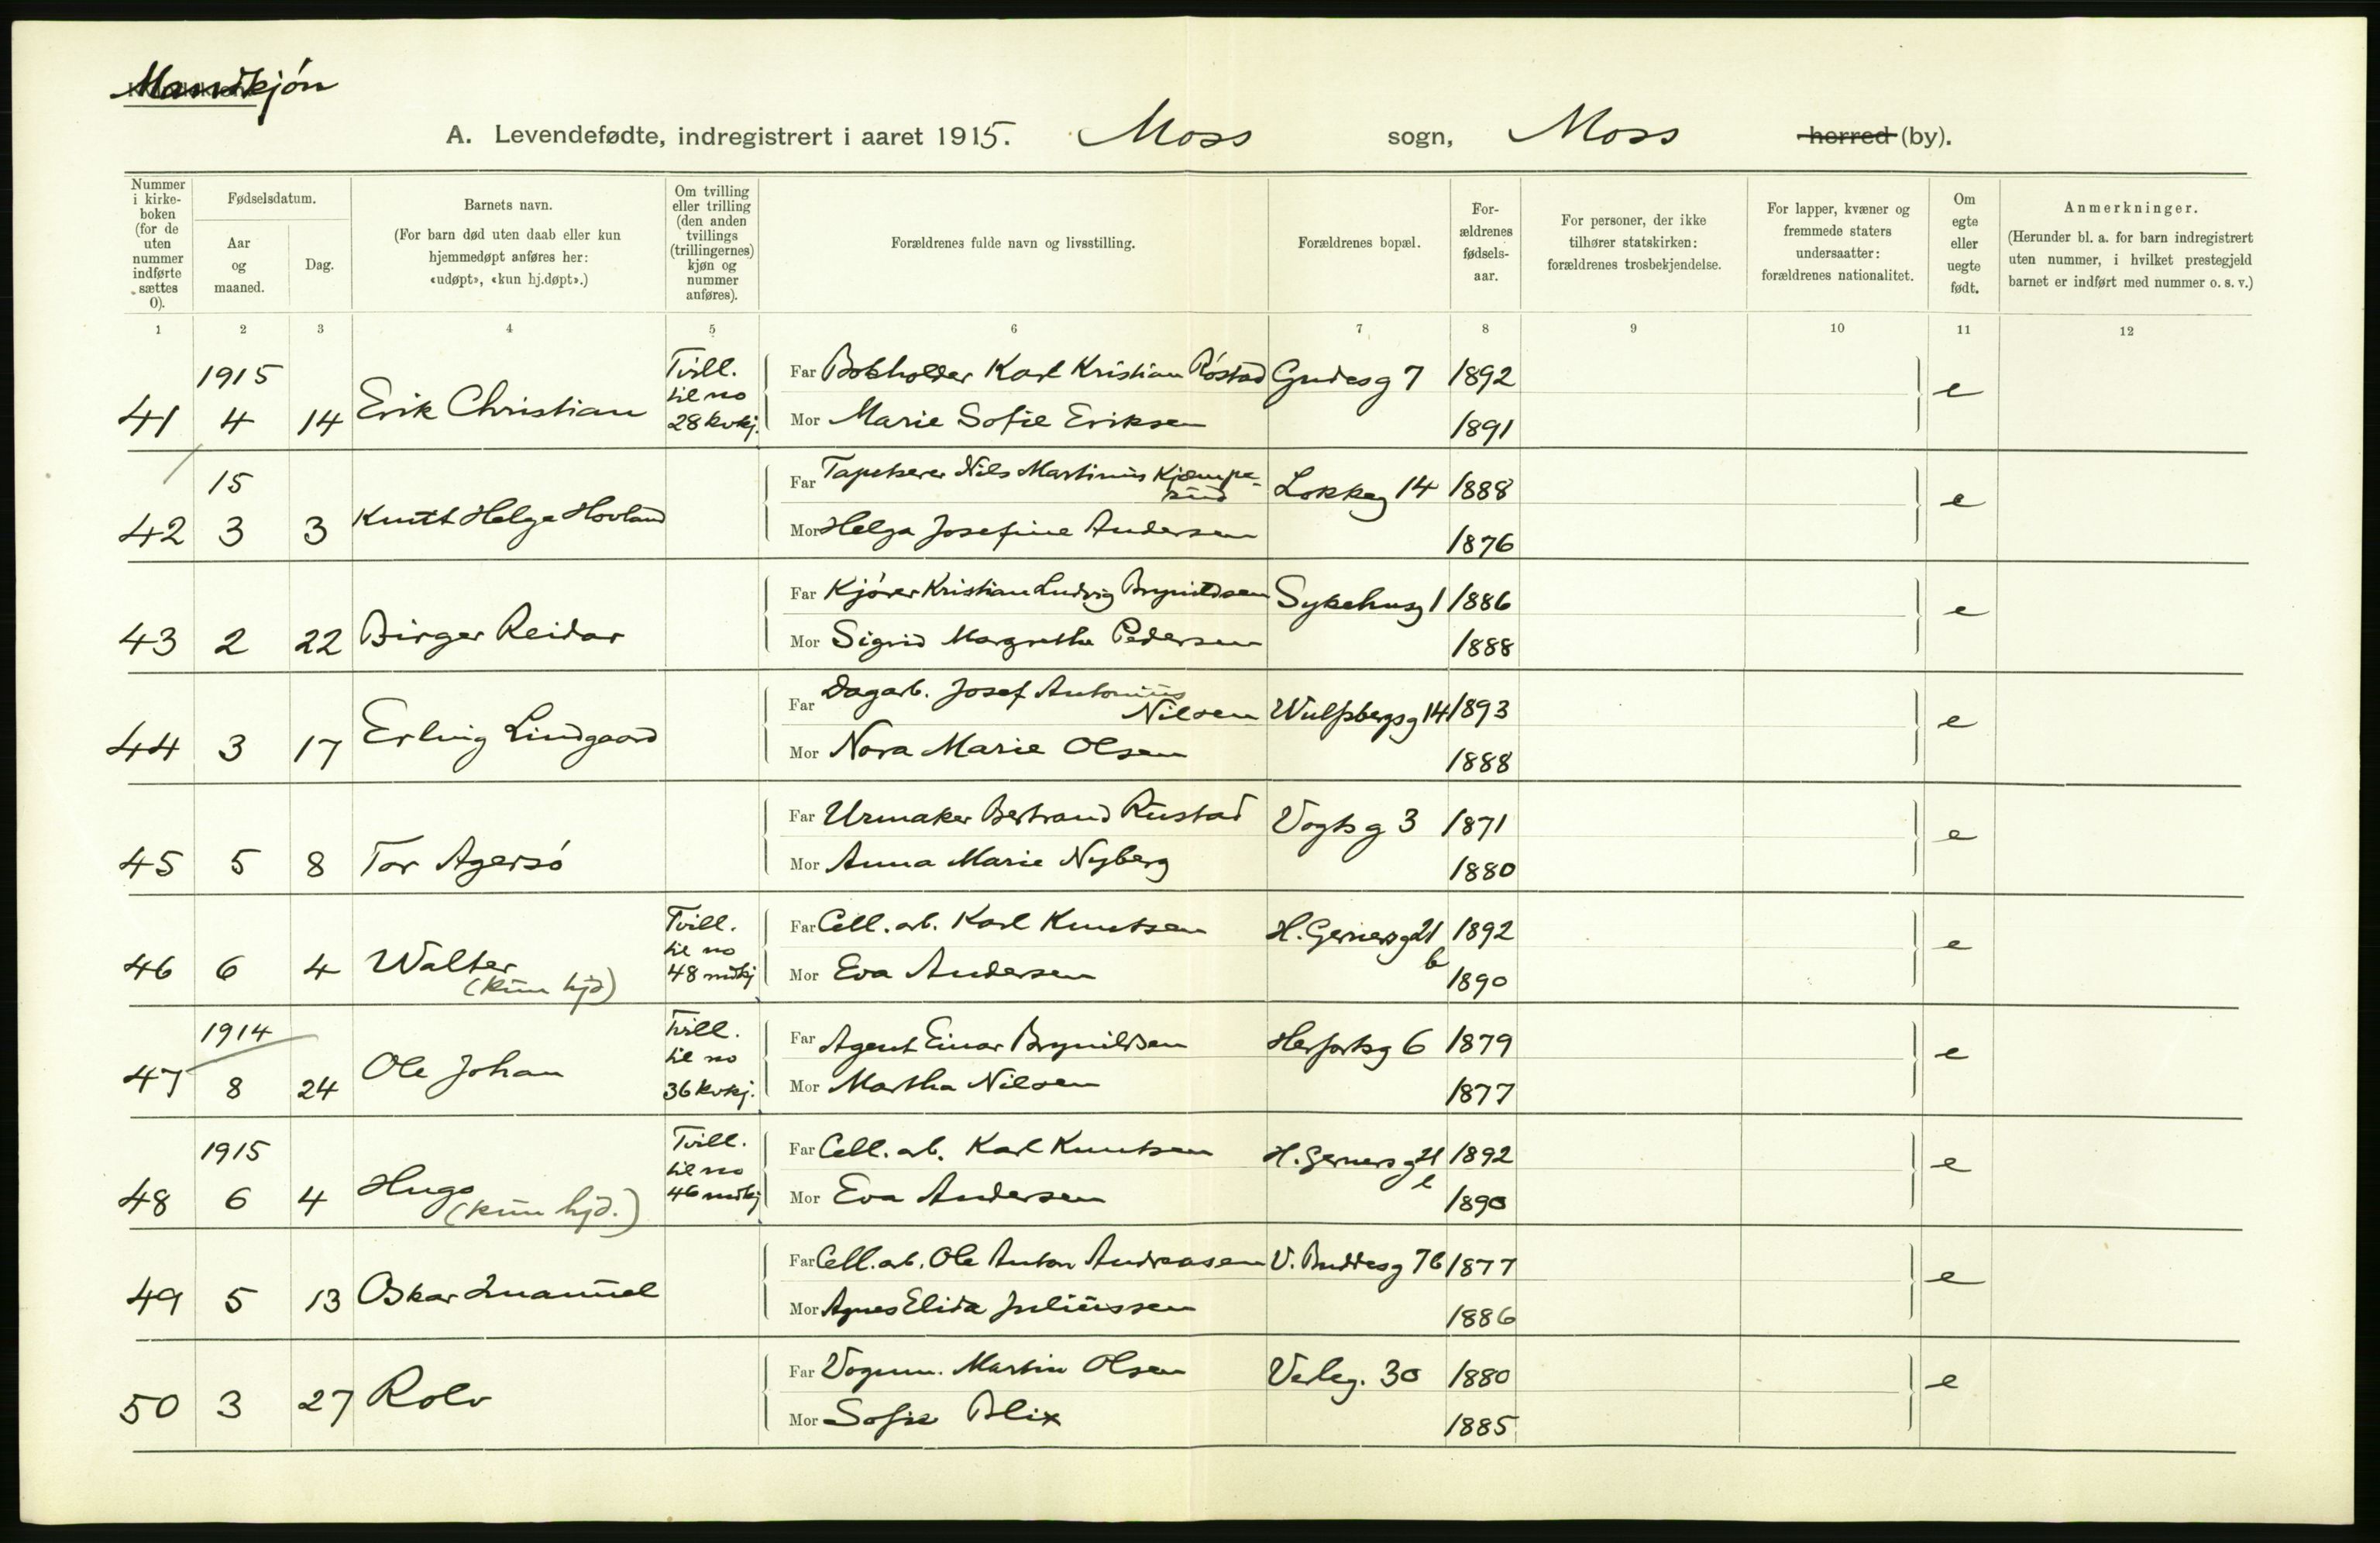 Mandkjøn
A. Levendefødte, indregistrert i aaret 1915. Moss sogn, Moss herred (by).
Nummer i kirke-boken (for de uten nummer indførte sættes 0).
Fødselsdatum.
Aar og maaned.
Dag.
Barnets navn.
(For barn død uten daab eller kun hjemmedøpt anføres her: «udøpt», «kun hj.døpt».)
Om tvilling eller trilling (den anden tvillings (trillingernes) kjøn og nummer anføres).
Forældrenes fulde navn og livsstilling.
Forældrenes bopæl.
For-ældrenes fødsels-aar.
For personer, der ikke tilhører statskirken: forældrenes trosbekjendelse.
For lapper, kvæner og fremmede staters undersaatter: forældrenes nationalitet.
Om egte eller uegte født.
Anmerkninger.
(Herunder bl. a. for barn indregistrert uten nummer, i hvilket prestegjeld barnet er indført med nummer o. s. v.)
1 2 3 4 5 6 7 8 9 10 11 12
1915 Tvill. Far Bokholder Karl Kristian Røstad Gudesg 7 1892
41 4 14 Erik Christian til no 28 kvkj. Mor Marie Sofie Eriksen 1891 e
15 Far Tapetserer Nils Martinus Kjempe-rud Lokkeg 14 1888
42 3 3 Knutt Helge Hovland Mor Helga Josefine Andersen 1876 e
Far Kjører Kristian Ludvig Brynildsen Sykehusg 1 1886
43 2 22 Birger Reidar Mor Sigrid Margrethe Pedersen 1888 e
Far Dagarb. Josef Antonius Nilsen Wulfsbergsg 14 1893
44 3 17 Erling Lindgaard Mor Nora Marie Olsen 1888 e
Far Urmaker Bertrand Rustad Vogtsg 3 1871
45 5 8 Tor Agersø Mor Anna Marie Nyberg 1880 e
Tvill. Far Cell. arb. Karl Knutsen H. Gernersg 21 b 1892
46 6 4 Walter (kun hjd) til no 48 mdkj Mor Eva Andersen 1890 e
1914 Tvill. Far Agent Einar Brynildsen Herfortsg 6 1879
47 8 24 Ole Johan til no 36 kvkj. Mor Martha Nilsen 1877 e
1915 Tvill. Far Cell. arb. Karl Knutsen H. Gernersg 21 b 1892
48 6 4 Hugo (kun hjd.) til no 46 mdkj Mor Eva Andersen 1890 e
Far Cell. arb. Ole Anton Andreasen V. Buddesg 7b 1877
49 5 13 Oskar Imanuel Mor Agnes Elida Juliussen 1886 e
Far Vognm. Martin Olsen Verleg. 30 1880
50 3 27 Rolv Mor Sofie Blix 1885 e